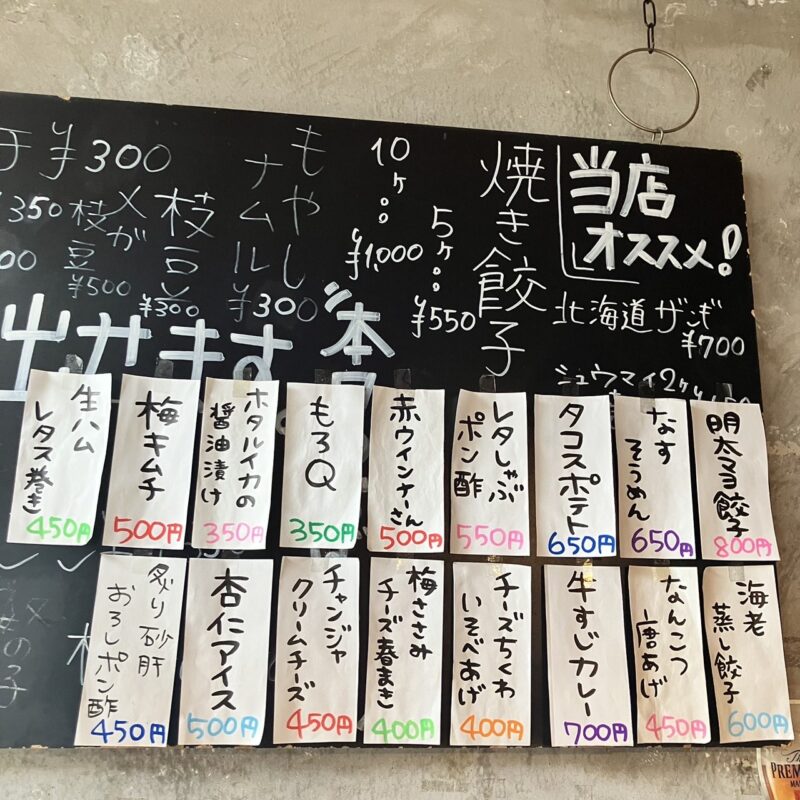 当店
オススメ!
北海道ザンギ
¥700
シュウマイ2ケ
焼き餃子
5ケ
¥550
10ケ
¥1,000
もやし
ナムル
¥300
枝豆
¥300
メガ
枝豆
¥500
¥300
350
出かます。
本
明太子餃子
800円
なす
そうめん
650円
タコスポテト
650円
レタしゃぶ
ポン酢
550円
赤ウィンナーさん
500円
もろQ
350円
ホタルイカの
醤油漬け
350円
梅キムチ
500円
生ハム
レタス巻き
450円
海老
蒸し餃子
600円
なんこつ
唐あげ
450円
牛すじカレー
700円
チーズちくわ
いそべあげ
400円
梅ささみ
チーズ春まき
400円
チャンジャ
クリームチーズ
450円
杏仁アイス
500円
炙り砂肝
おろしポン酢
450円